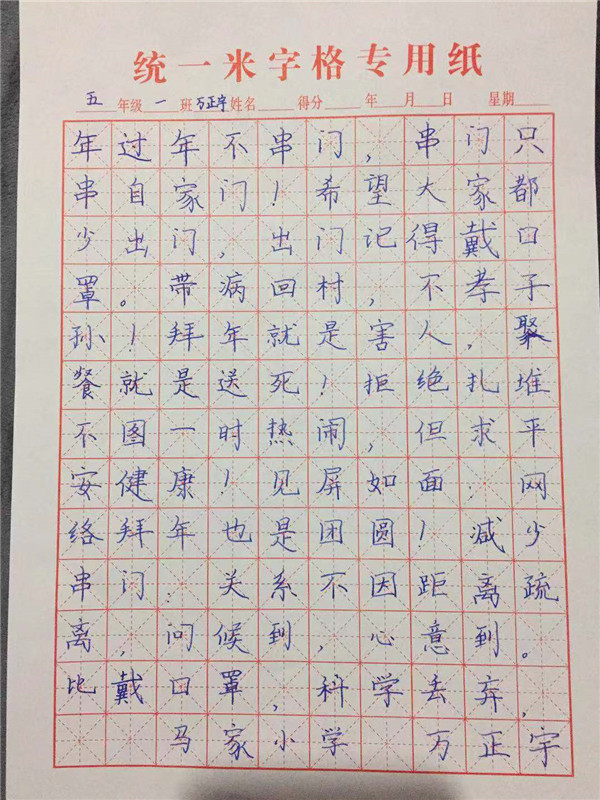 统一米字格专用纸
五 年级 一 班 万正宇 姓名 得分 年 月 日 星期
年过年不串门，串门只
串自家门！希望大家都
少出门，出门记得戴口
罩。带病回村，不孝子
孙！拜年就是害人，聚
餐就是送死！拒绝扎堆
不图一时热闹，但求平
安健康！见屏如面，网
络拜年也是团圆！减少
串门，关系不因距离疏
离，问候到，心意到。
比戴口罩，科学丢弃，
马家小学 万正宇